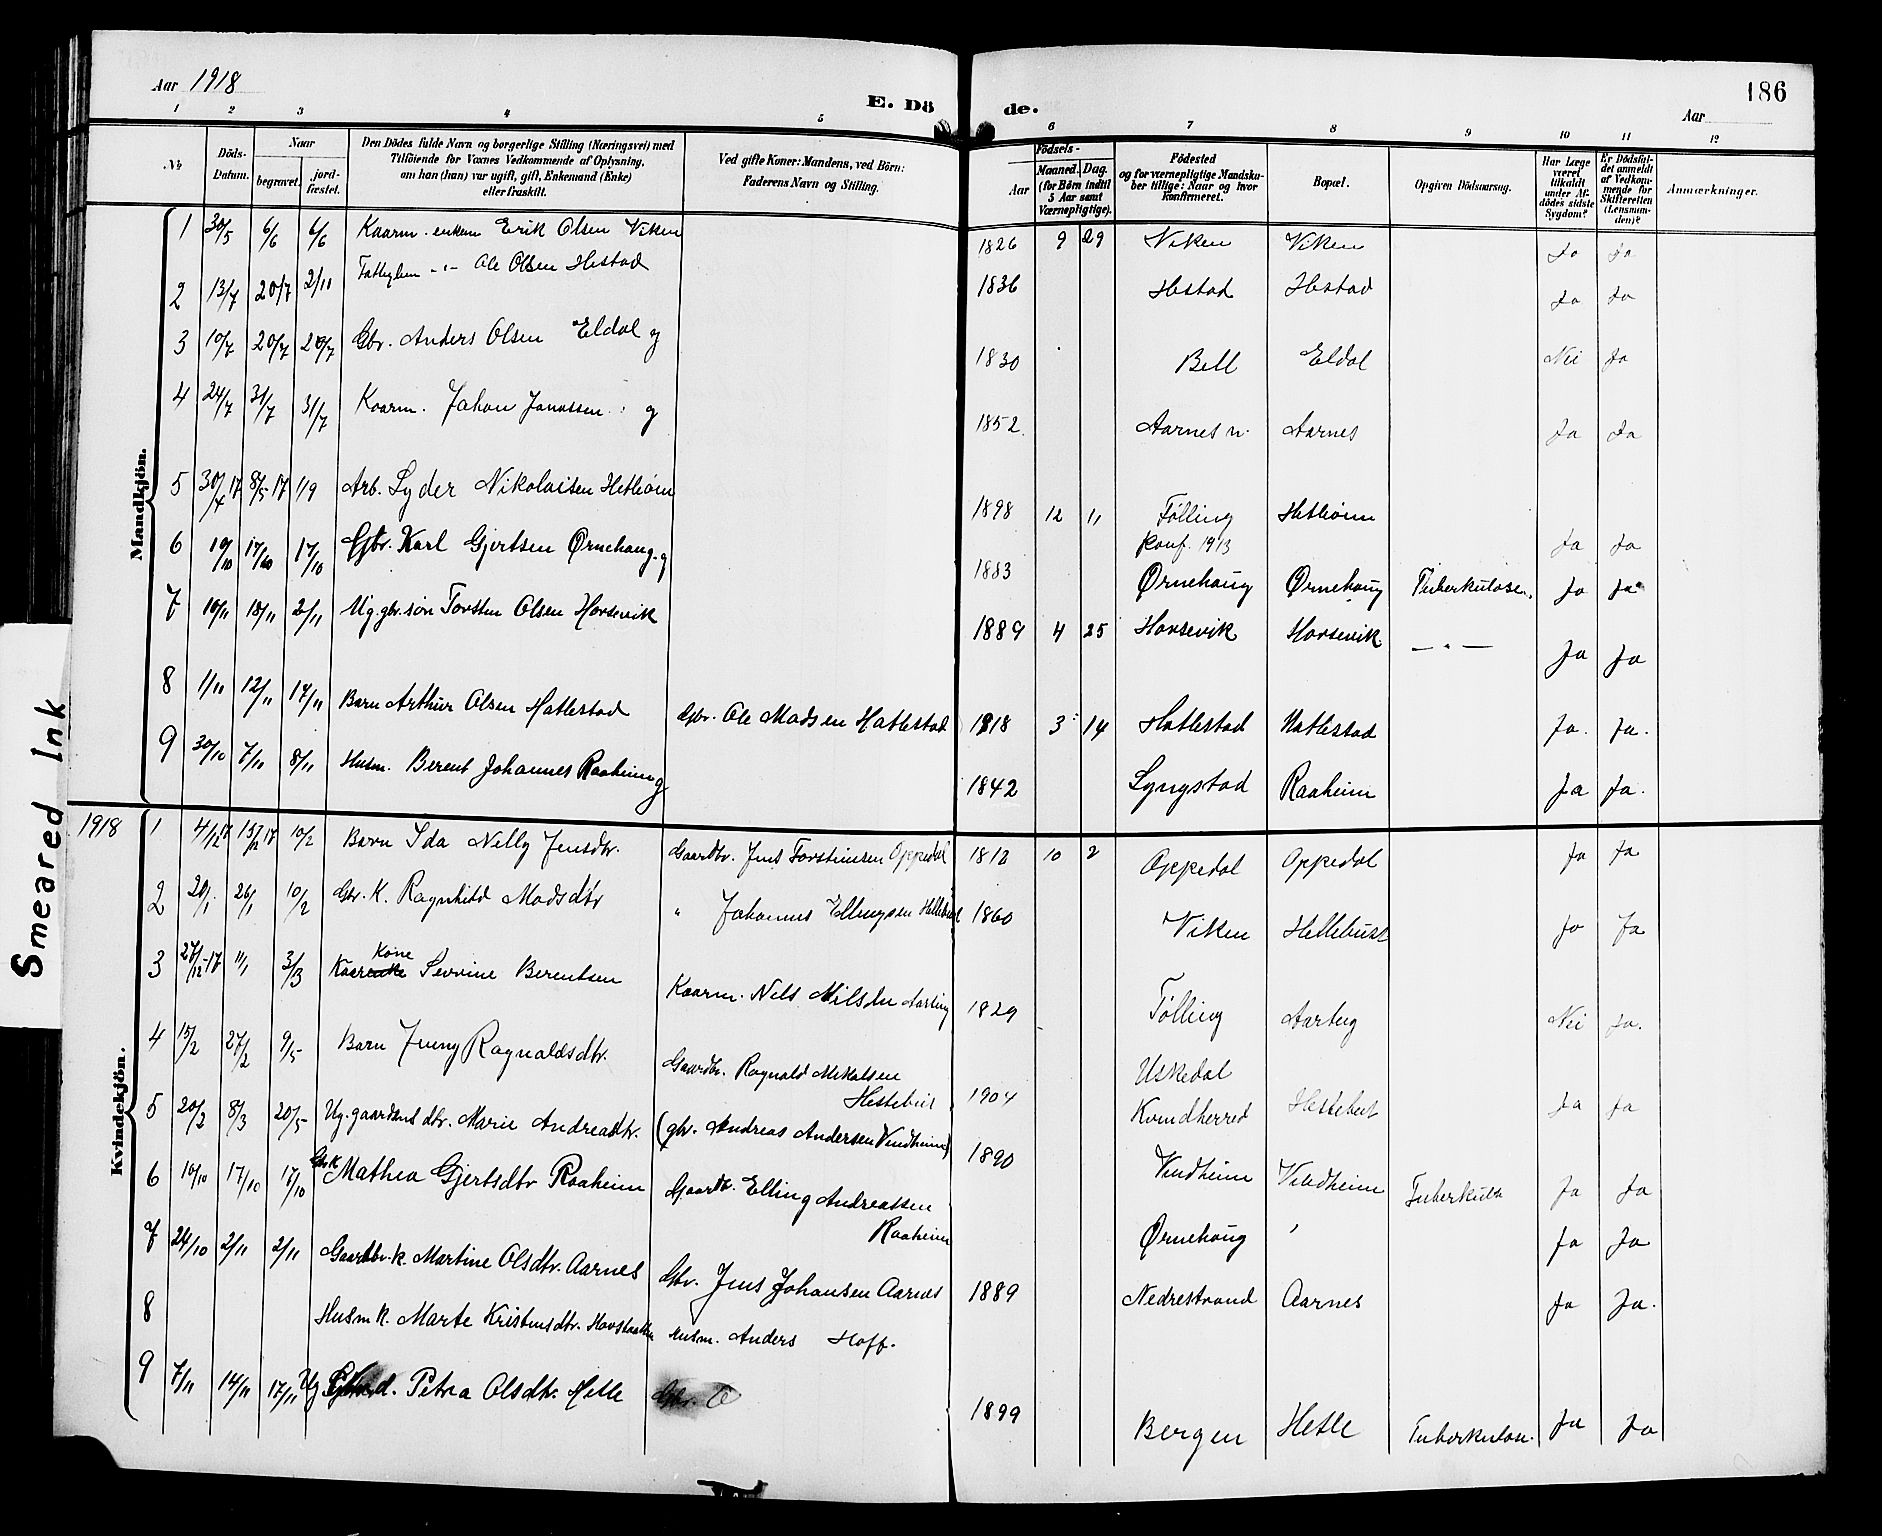 Aar 1918
E. Döde.
186
Aar
1 2 3 4 5 6 7 8 9 10 11 12
No.
Döds-Datum.
Naar
begravet.
jord-fæstet.
Den Dödes fulde Navn og borgerlige Stilling (Næringsvei) med
Tilföiende for Voxnes Vedkommende af Oplysning,
om han (hun) var ugift, gift, Enkemand (Enke)
eller fraskilt.
Ved gifte Koner: Mandens, ved Börn:
Faderens Navn og Stilling.
Födsels-
Aar
Maaned. Dag.
(for Börn indtil
5 Aar samt
Værnepligtige).
Födested
og for værnepligtige Mandska-
ber tillige: Naar og hvor
konfirmeret.
Bopæl.
Opgiven Dödsaarsag.
Har Læge
været
tilkaldt
under Af-
dödes sidste
Sygdom?
Er Dödsfal-
det anmeldt
af Vedkom-
mende for
Skifteretten
(Lensman-
den)?
Anmærkninger.
Mandkjön.
1 30/5 6/6 6/6 Kaarm. enkem Erik Olsen Viken 1826 9 29 Viken Viken Ja Ja
2 13/7 20/7 2/11 -"- Ole Olsen Hestad 1836 Hestad Hestad Ja Ja
3 10/7 20/7 20/7 Gbr. Anders Olsen Eldal g 1830 Bell Eldal Nei Ja
4 24/7 31/7 31/7 Kaarm. Johan Jonassen g 1852 Aarnes n. Aarnes Ja Ja
5 30/4 17 8/5-17 1/9 Arb. Lyder Nikolaisen 1898 12 11 Tølling
konf. 1913 Ja Ja
6 10/10 17/10 17/10 Gbr. Karl Gjertsen Ørnehaug g 1883 Ørnehaug Ørnehaug Tuberkulose. Ja Ja
7 10/11 18/11 2/11 Ug. gbr. søn Torsten Olsen Horsevik 1889 4 25 Horsevik Horsevik -"- Ja Ja
8 1/11 12/11 17/11 Barn Arthur Olsen Hatlestad Gbr. Ole Madsen Hatlestad 1918 3 14 Hatlestad Hatlestad Ja. Ja.
9 30/10 7/11 8/11 Husm. Berent Johannes Raaheim g 1842 Lyngstad Raaheim Ja Ja.
1918
Kvindekjön.
1 4/12 17 13/2 17 10/2 Barn Ida Nelly Jensdtr. Gaardbr. Jens Torsteinsen Oppedal 1812 10 2 Oppedal Oppedal Ja Ja
2 20/1 26/1 10/2 Gbr. K. Ragnhild Madsdtr " Johannes Ellingsen Hellebust 1860 Viken Hellebust Ja Ja
3 27/12-17 11/1 3/3 Kone Sevrine Berentsen Kaarm. Nels Nilsen 1829 Tølling Nei Ja.
4 15/2 27/2 9/5 Barn Jenny Ragnaldsdtr. Gaardbr. Ragnald Mikalsen
1904 Uskedal
Kvindherred Ja Ja
5 20/2 8/3 20/5 Ug. gaardmd dtr. Marie Andreasdtr. (gbr. Andreas Andersen Vindheim) 1890 Vindheim Vindheim Ja Ja
6 10/10 17/10 17/10 Gbr K Mathea Gjertsdtr Raaheim Gaardbr. Elling Andreassen
Raaheim Ørnehaug " Tuberkulo Ja Ja
7 24/10 2/11 2/11 Gaardbr. k. Martine Olsdtr. Aarnes Gbr. Jens Johansen Aarnes 1889 Nedrestrand Aarnes Ja Ja.
8 Husm k. Marte Kristensdtr. Husm. Anders Hoff.
9 7/11 14/11 17/11 Ug Petra Olsdtr. Hetle Gbr. O 1899 Bergen Hetle Tuberkulose. Ja Ja
Smeared Ink